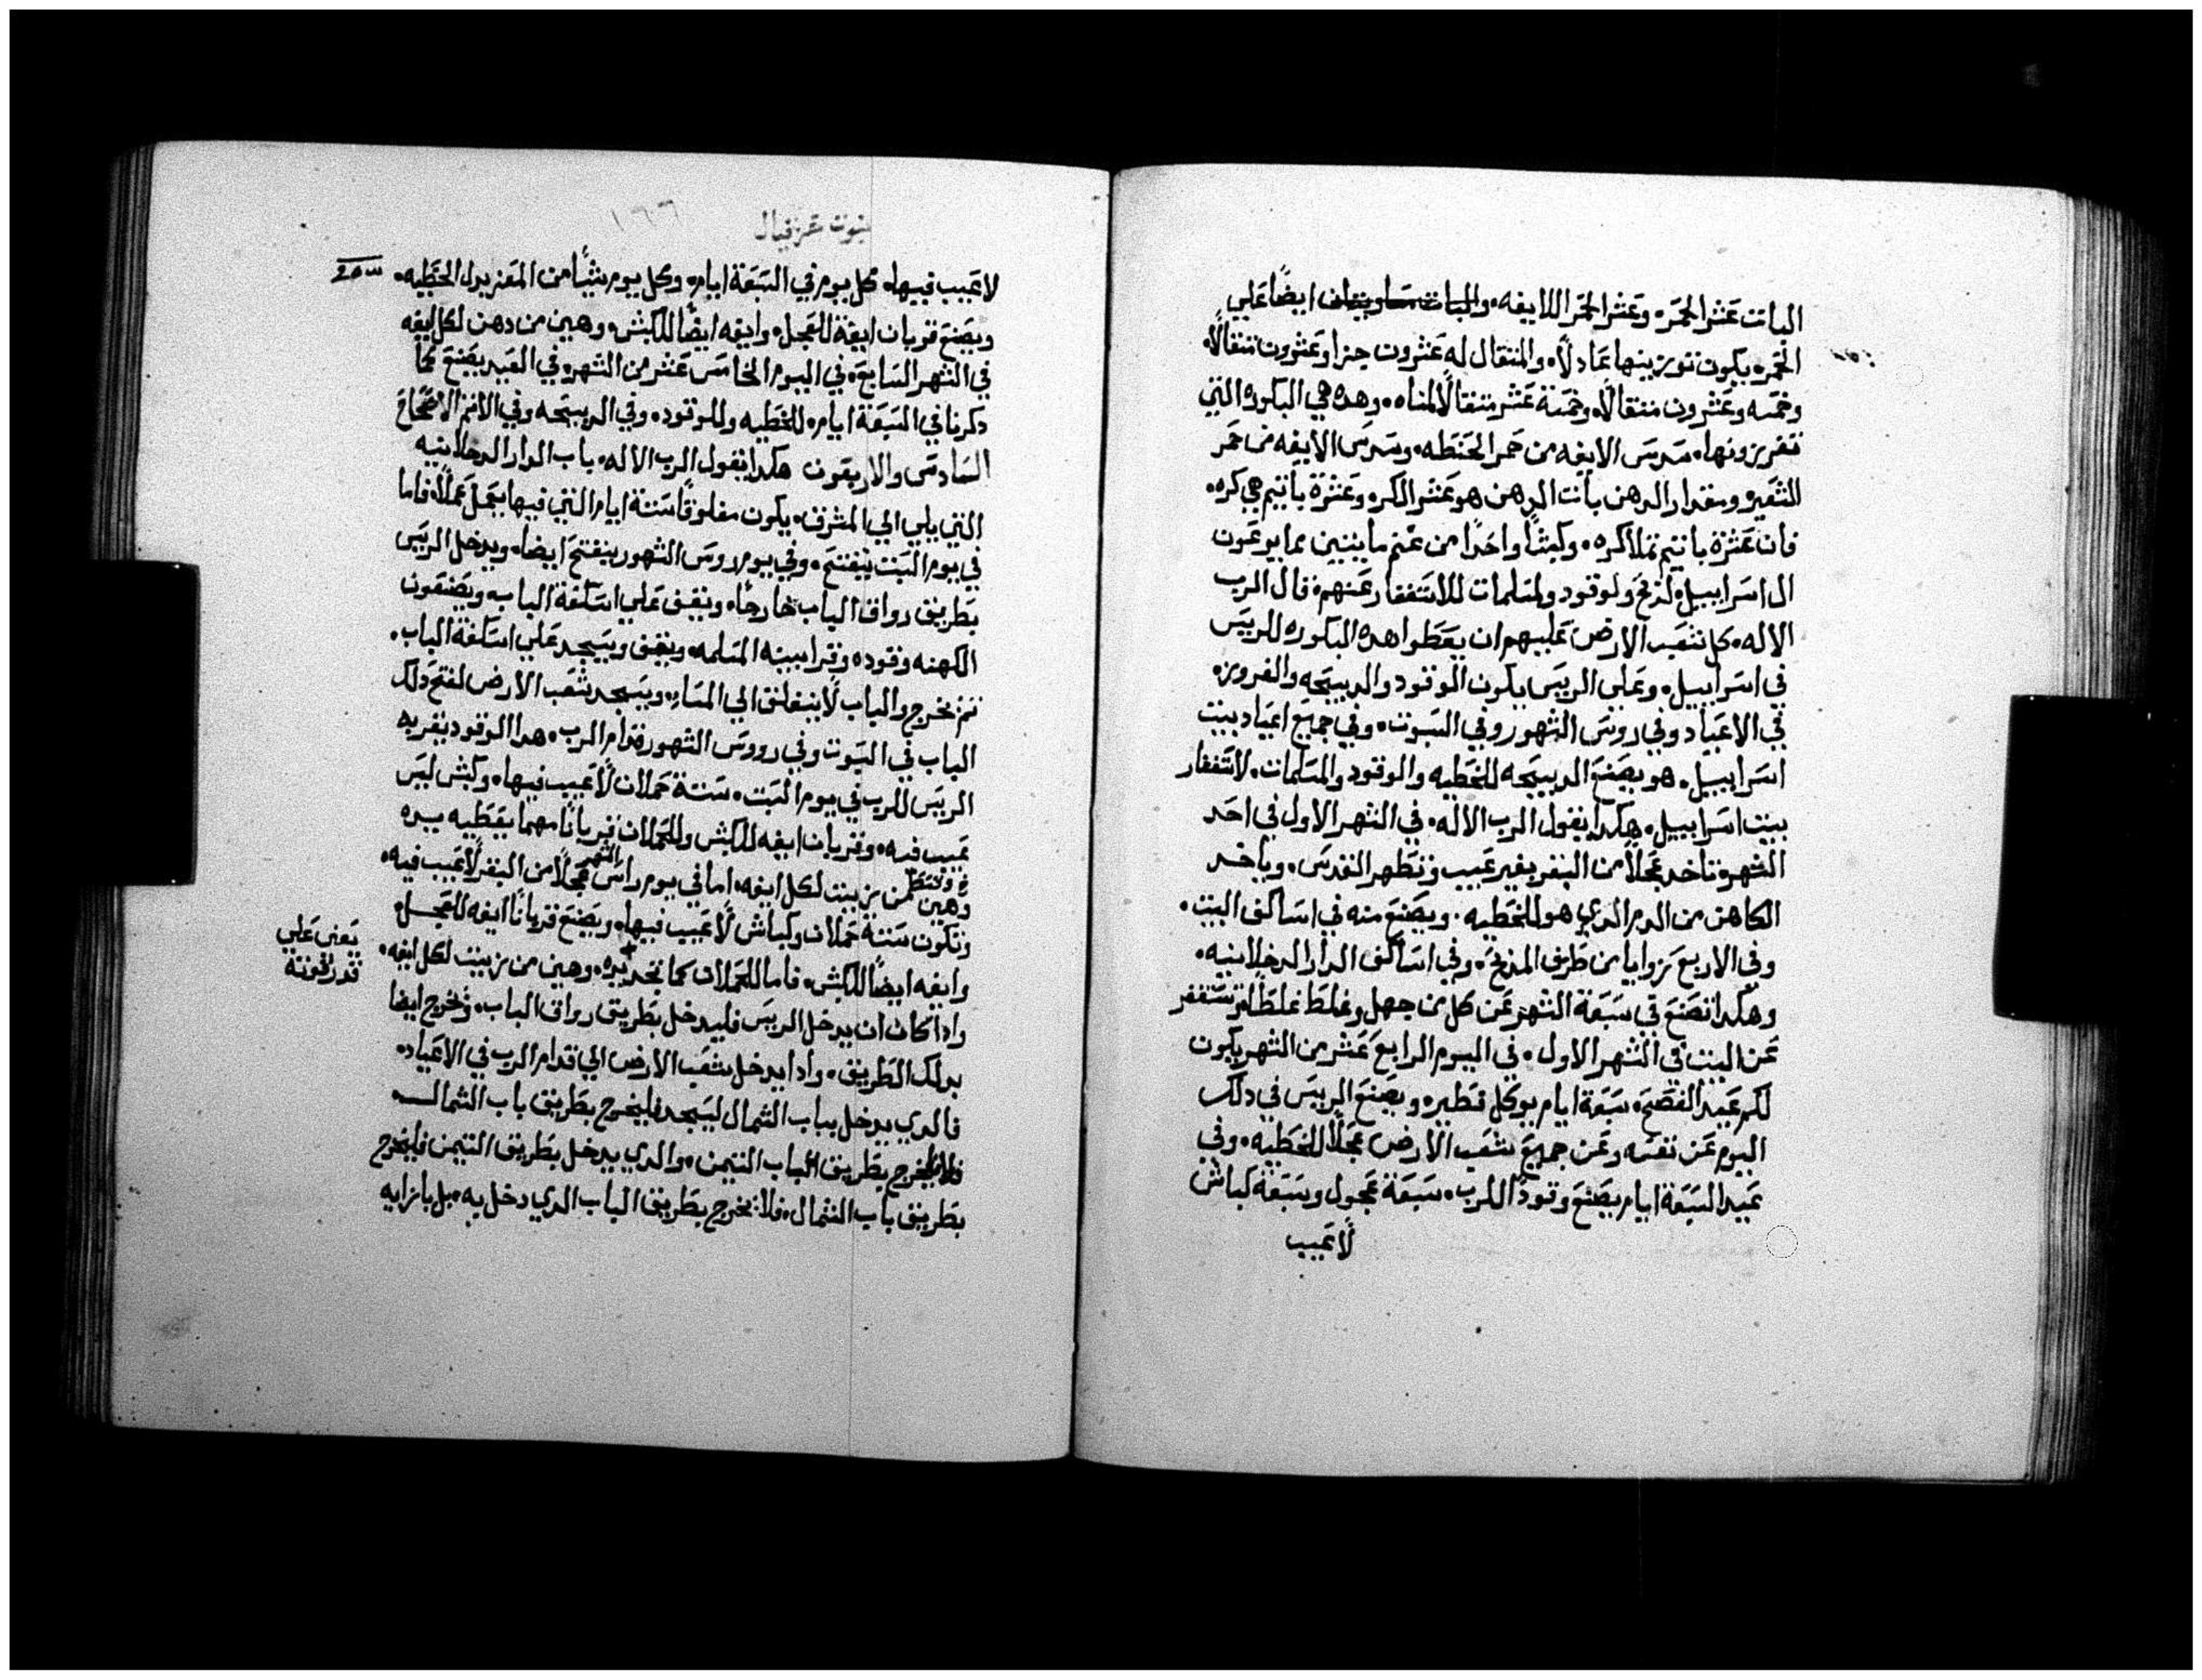 الباث عشر الحمر، وعشر الحمر اللايفه، والباث متساويتان ايضًا علي
الحمر، يكون توزينها عادلًا، والمثقال له عشرون جيرا وعشرون مثقالًا،
وخمسه وعشرون مثقالًا، وخمسة عشر مثقالًا لمناه، وهده هي البكوره التي
تفرزونها، سدس الايفه من حمر الحنطه، وسدس الايفه من حمر
الشعير، ومقدار الدهن باث الدهن هو عشر الكر، وعشرة باثيم هي كر،
فان عشرة باثيم تملا كره، وكبشًا واحدًا من غنم مايتين مما يرعون
ال اسراييل، لدبح ولوقود ولمسلمات للاستغفار عنهم، قال الرب
الاله، كل شعب الارض عليهم ان يعطوا هده البكوره للرييس
في اسراييل، وعلي الرييس يكون الوقود والدبيحه والفروزه
في الاعياد وفي روس الشهور وفي السبوت، وفي جميع اعياد بيت
اسراييل، هو يصنع الدبيحه للخطيه والوقود والمسلمات، لاستغفار
بيت اسراييل، هكدا يقول الرب الاله، في الشهر الاول في احد
الشهر، تاخد عجلًا من البقر بغير عيب وتطهر القدس، وياخد
الكاهن من الدم الدي هو للخطيه، ويصنع منه في اساكف البيت،
وفي الاربع زوايا من طرف المدبح، وفي اساكف الدار الدخلانيه،
وهكدا تصنع في سبعة الشهر عن كل من جهل وغلط غلطًا وتستغفر
عن البيت في الشهر الاول، في اليوم الرابع عشر من الشهر يكون
لكم عيد الفصح، سبعة ايام يوكل فطير، ويصنع الرييس في دلك
اليوم عن نفسه وعن جميع شعب الارض عجلًا للخطيه، وفي
عيد السبعة ايام يصنع وقودًا للرب، سبعة عجول وسبعة كباش
لا عيب
نبوت حزقيال
١٦٦
لا عيب فيها، كل يوم في السبعة ايام، وكل يوم تيسًا من المعز بدل الخطيه،
ويصنع قربان ايفة للعجل، وايفه ايضًا للكبش، وهين من دهن لكل ايفه
في الشهر السابع، في اليوم الخامس عشر من الشهر، في العيد يصنع كما
دكرنا في السبعة ايام، للخطيه وللوقود، وفي الدبيحه وفي الدهن الاصحاح
السادس والاربعون هكدا يقول الرب الاله، باب الدار الدخلانيه
التي يلي الي المشرق، يكون مغلوقًا ستة ايام التي فيها يعمل عملًا، فاما
في يوم السبت ينفتح، وفي يوم روس الشهور ينفتح ايضا، ويدخل الرييس
بطريق رواق الباب خارجًا، ويقف علي اسكفة الباب، ويصنعون
الكهنه وقوده وقرابينه المسلمه، ويقف ويسجد علي اسكفة الباب،
ثم يخرج والباب لا ينغلق الي المساء، ويسجد شعب الارض لفتح دلك
الباب في السبوت وفي رووس الشهور قدام الرب، هدا الوقود يقربه
الرييس للرب في يوم السبت، ستة حملان لا عيب فيها، وكبش ليس
عيب فيه، وقربان ايفه للكبش وللحملان قربانًا مهما يعطيه يده
وهين من زيت لكل ايفه، اما في يوم راس الشهر عجلًا من البقر لا عيب فيه،
وتكون ستة حملان وكباش لا عيب فيها، ويصنع قربانًا ايفه للعجل،
يعني علي
قدر قوته
وايفه ايضًا للكبش، فاما للحملان كما تجد يده، وهين من زيت لكل ايفه،
وادا كان ان يدخل الرييس فليدخل بطريق رواق الباب، ويخرج ايضا
بدلك الطريق، وادا يدخل شعب الارض الي قدام الرب في الاعياد،
فالدي يدخل بباب الشمال ليسجد فليخرج بطريق باب الشمال
فلا يخرج بطريق الباب التيمن، والدي يدخل بطريق التيمن فليخرج
بطريق باب الشمال، فلا يخرج بطريق الباب الدي دخل به، بل بازايه